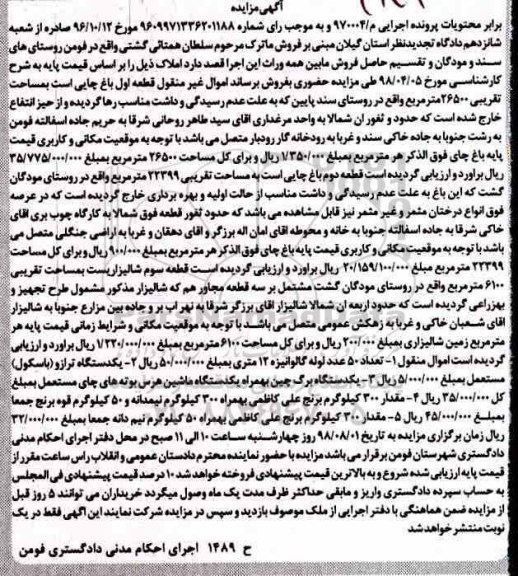 آگهی مزایده
برابر محتویات پرونده اجرایی م/۹۷۰۰۰۴ و به موجب رای شماره ۹۶۰۹۹۷۱۳۳۶۲۰۱۱۸۸ مورخ ۹۶/۱۰/۱۲ صادره از شعبه
شانزدهم دادگاه تجدیدنظر استان گیلان مبنی بر فروش ماترک مرحوم سلطان همتائی گشتی واقع در فومن روستای های
سند و مودگان و تقسیم حاصل فروش مابین همه وراث این اجرا قصد دارد املاک ذیل را بر اساس قیمت پایه به شرح
کارشناسی مورخ ۹۸/۰۴/۰۵ طی مزایده حضوری بفروش برساند اموال غیر منقول قطعه اول باغ چایی است بمساحت
تقریبی ۲۶۵۰۰مترمربع واقع در روستای سند پایین که به علت عدم رسیدگی و داشت مناسب رها گردیده و از حیز انتفاع
خارج شده است که حدود و ثغور ان شمالا به واحد مرغداری اقای سید طاهر روحانی شرقا به حریم جاده اسفالته فومن
به رشت جنوبا به جاده خاکی سند و غربا به رودخانه گاز رودبار متصل می باشد با توجه به موقعیت مکانی و کاربری قیمت
پایه باغ چای فوق الذکر هر مترمربع بمبلغ ۱/۳۵۰/۰۰۰ ریال و برای کل مساحت ۲۶۵۰۰ مترمربع بمبلغ ۳۵/۷۷۵/۰۰۰/۰۰۰
ریال براورد و ارزیابی گردیده است قطعه دوم باغ چایی است به مساحت تقریبی ۲۲۳۹۹ مترمربع واقع در روستای مودگان
گشت که این باغ به علت عدم رسیدگی و داشت مناسب از حالت اولیه و بهره برداری خارج گردیده است که در عرصه
فوق انواع درختان مثمر و غیر مثمر نیز قابل مشاهده می باشد که حدود ثغور قطعه فوق شمالا به کارگاه چوب بری اقای
خاکی شرقا به جاده اسفالته جنوبا به خانه و محوطه اقای امان اله برزگر و اقای دهقان و غربا به اراضی جنگلی متصل می
باشد با توجه به موقعیت مکانی و کاربری قیمت پایه باغ چای فوق الذکر هر مترمربع بمبلغ ۹۰۰/۰۰۰ ریال و برای کل مساحت
۲۲۳۹۹ مترمربع مبلغ ۲۰/۱۵۹/۱۰۰/۰۰۰ ریال براورد و ارزیابی گردیده است قطعه سوم شالیزاریست بمساحت تقریبی
۶۱۰۰ مترمربع واقع در روستای مودگان گشت مشتمل بر سه قطعه مجاور هم که شالیزار مذکور مشمول طرح تجهیز و
بهزراعی گردیده است که حدود اربعه ان شمالا شالیزار اقای برزگر شرقا به نهر اب بر و جاده بین مزارع جنوبا به شالیزار
اقای شعبان خاکی و غربا به زهکش عمومی متصل می باشد با توجه به موقعیت مکانی و شرایط زمانی قیمت پایه هر
مترمربع زمین شالیزاری بمبلغ ۲۰۰/۰۰۰ ریال و برای کل مساحت ۶۱۰۰ مترمربع بمبلغ ۱/۲۲۰/۰۰۰/۰۰۰ ریال براورد و ارزیابی
گردیده است اموال منقول ۱- تعداد ۵۰ عدد لوله گالوانیزه ۱۲ متری بمبلغ ۵۰/۰۰۰/۰۰۰ ریال ۲- یکدستگاه ترازو (باسکول)
مستعمل بمبلغ ۵/۰۰۰/۰۰۰ ریال ۳- یکدستگاه برگ چین بهمراه یکدستگاه ماشین هرس بوته های چای مستعمل بمبلغ
کل ۳۵/۰۰۰/۰۰۰ ریال ۴- مقدار ۳۰۰ کیلوگرم برنج علی کاظمی بهمراه ۳۰۰ کیلوگرم نیمدانه و ۵۰ کیلوگرم قوه برنج جمعا
بمبلغ ۴۵/۰۰۰/۰۰۰ ریال ۵- مقدار ۳۰۰ کیلوگرم برنج علی کاظمی بهمراه ۵۰ کیلوگرم نیم دانه جمعا بمبلغ ۳۲/۰۰۰/۰۰۰
ریال زمان برگزاری مزایده به تاریخ ۹۸/۰۸/۰۱ روز چهارشنبه ساعت ۱۰ الی ۱۱ صبح در محل دفتر اجرای احکام مدنی
دادگستری شهرستان فومن برقرار می باشد مزایده با حضور نماینده محترم دادستان عمومی و انقلاب راس ساعت مقرر از
قیمت پایه ارزیابی شده شروع و به بالاترین قیمت پیشنهادی فروخته خواهد شد ۱۰ درصد قیمت پیشنهادی فی المجلس
به حساب سپرده دادگستری واریز و مابقی حداکثر ظرف مدت یک ماه وصول میگردد خریداران می توانند ۵ روز قبل
از مزایده ضمن هماهنگی با دفتر اجرایی از ملک موصوف بازدید و سپس در مزایده شرکت نمایند این آگهی فقط در یک
نوبت منتشر خواهد شد
ح ۱۴۸۹ اجرای احکام مدنی دادگستری فومن